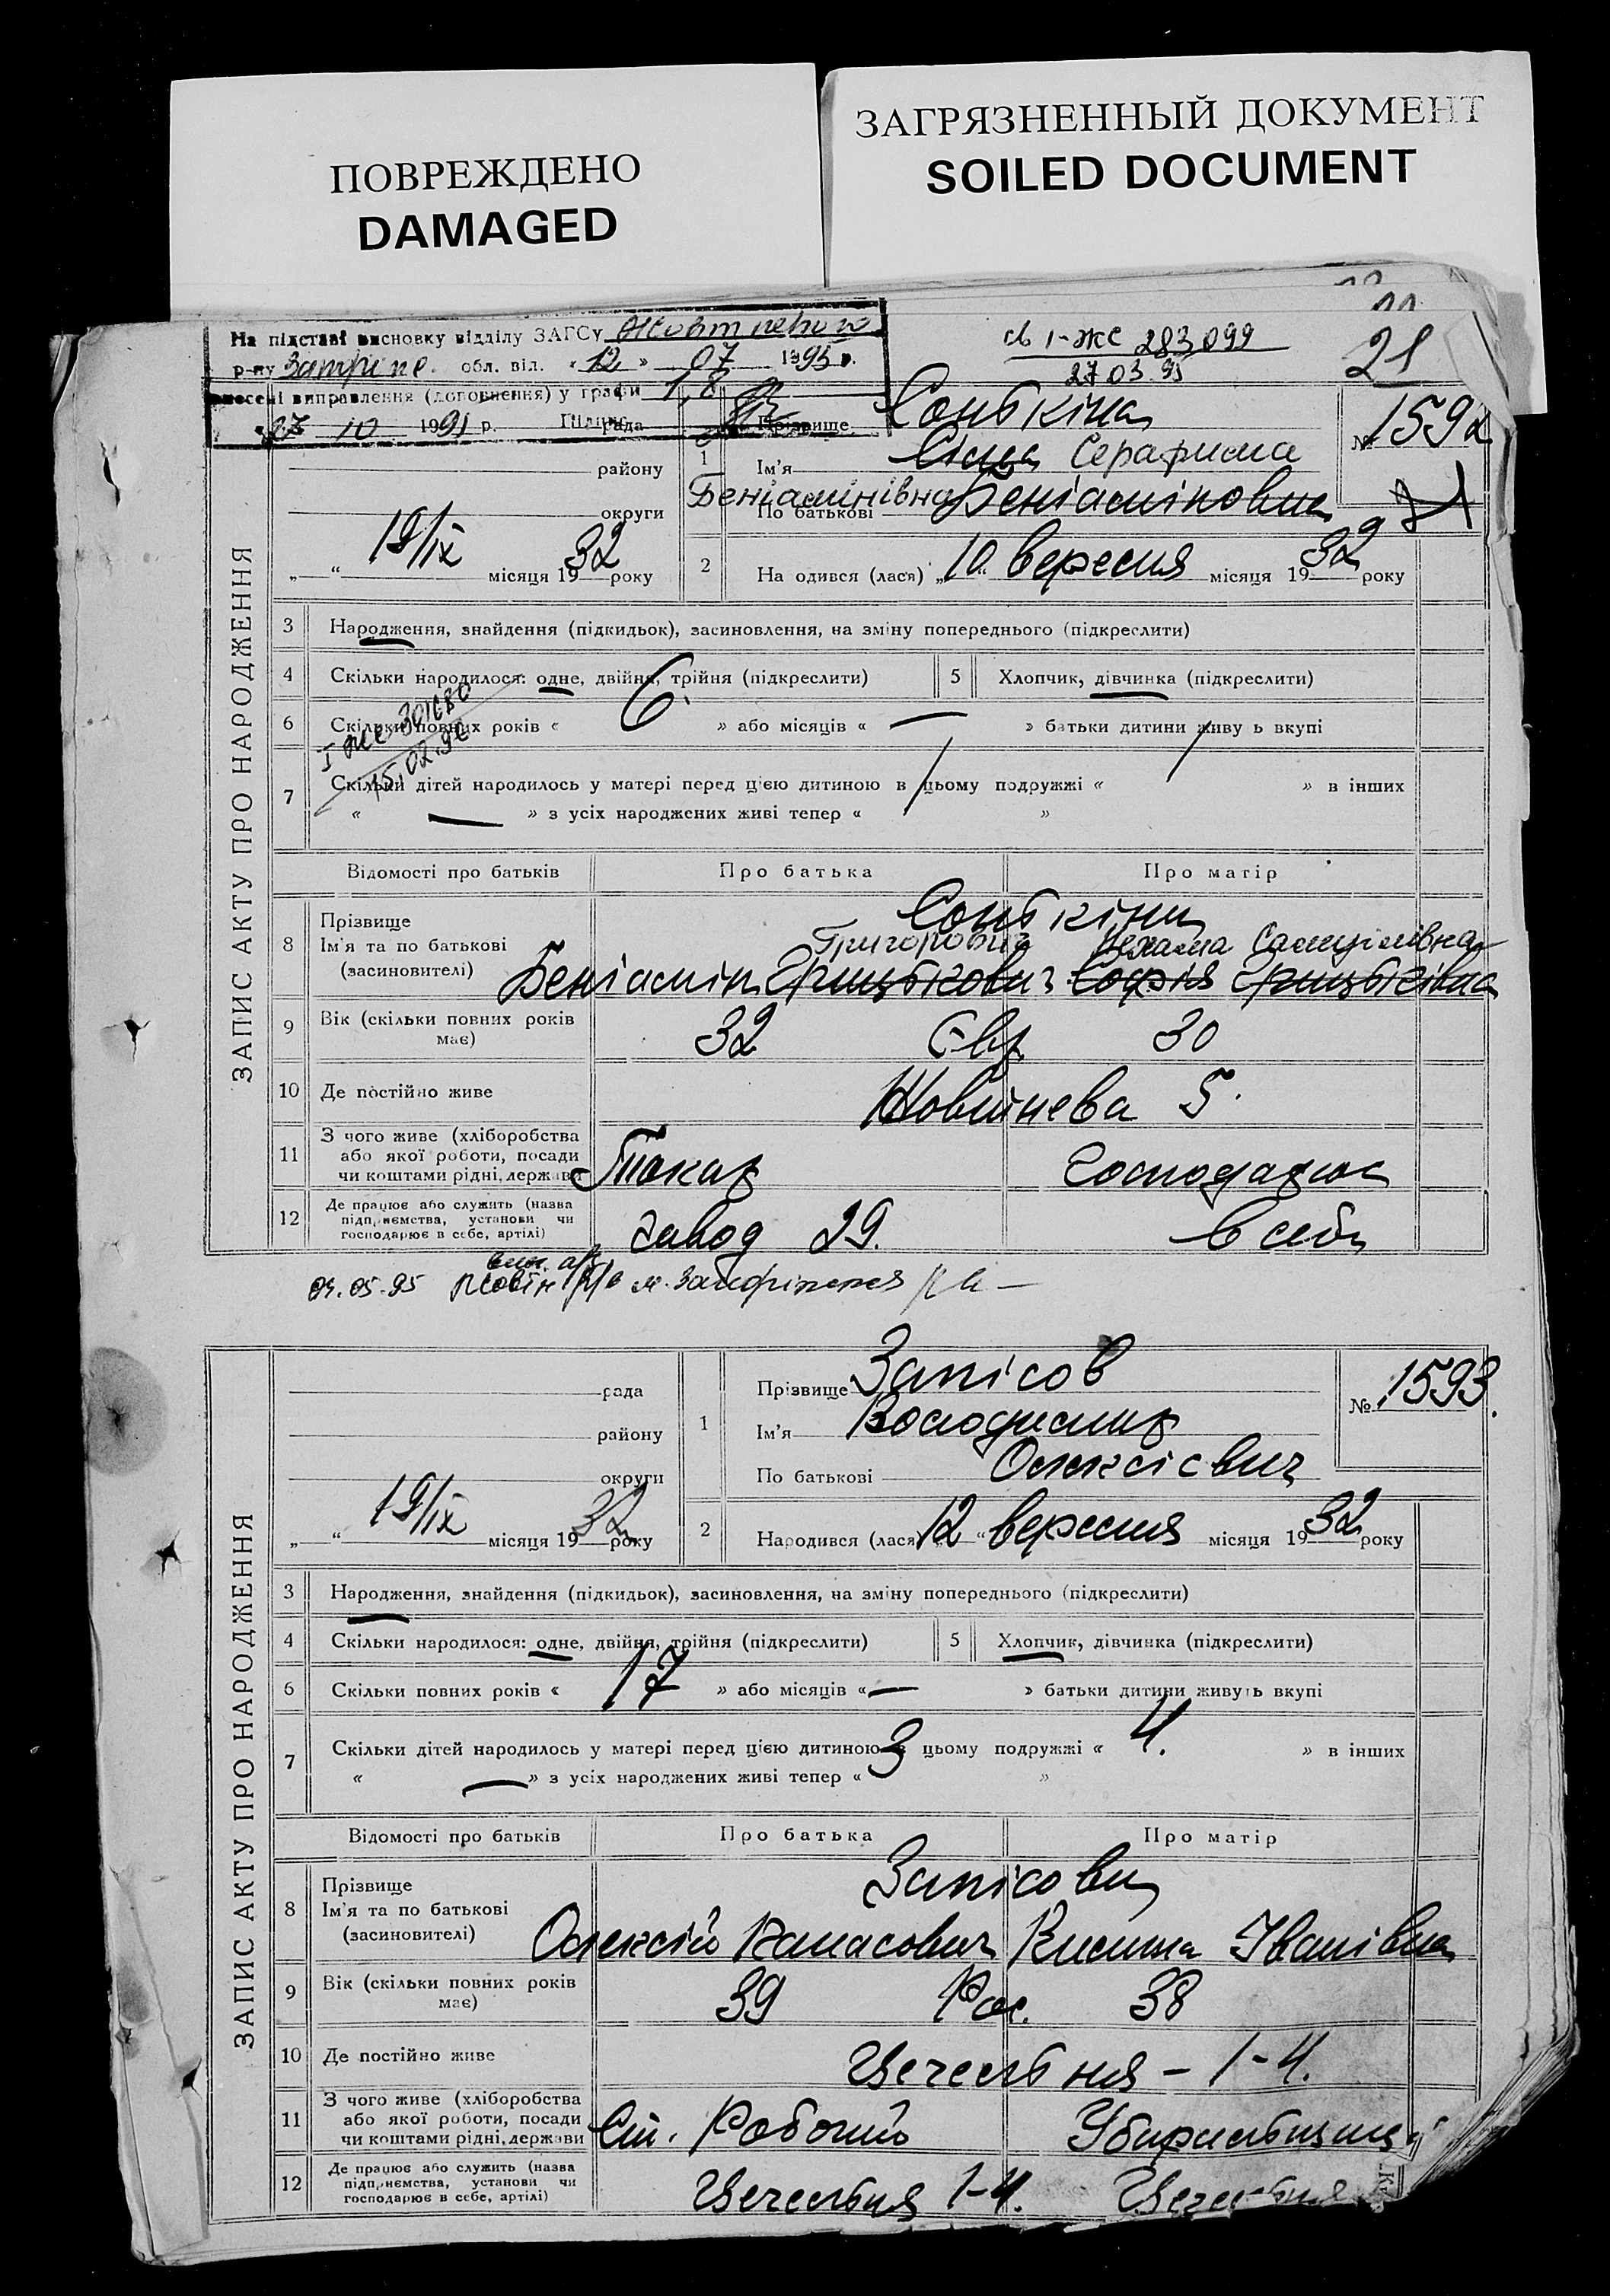 ПОВРЕЖДЕНО
DAMAGED
ЗАГРЯЗНЕННЫЙ ДОКУМЕНТ
SOILED DOCUMENT
На підставі висновку відділу ЗАГСу
р-ну обл. від. «12» 07 1995 р.
внесені виправлення (доповнення) у графи 1,8
10 1995 р. Підпис
св І-ЖС 283099
27 03 95
21
ЗАПИС АКТУ ПРО НАРОДЖЕННЯ
рада
району
округи
19/IX
„ “ місяця 1932 року
1 Прізвище Сонькіна
Ім'я Серафима
Беніамінівна
По батькові Беніаміновна
№ 1592
2 На одився (лася) „10“ вересня місяця 1932 року
3 Народження, знайдення (підкидьок), засиновлення, на зміну попереднього (підкреслити)
4 Скільки народилося: одне, двійня, трійня (підкреслити) 5 Хлопчик, дівчинка (підкреслити)
15.02.96
6 Скільки повних років « 6. » або місяців « — » батьки дитини живу ь вкупі
7 Скільки дітей народилось у матері перед цією дитиною в цьому подружжі « » в інших
« — » з усіх народжених живі тепер « »
Відомості про батьків Про батька Про матір
8 Прізвище
Ім'я та по батькові
(засиновителі)
Сонькіни
Григорович Нехама Самуілівна
Беніамін Грицькович Софія Грицьківна
9 Вік (скільки повних років має) 32 Євр. 30
10 Де постійно живе 5.
11 З чого живе (хліборобства або якої роботи, посади чи коштами рідні, держави Токар Господарює
12 Де працює або служить (назва підприємства, установи чи господарює в себе, артілі) завод 29. в себе
04.05.95 м. Запоріжжя
ЗАПИС АКТУ ПРО НАРОДЖЕННЯ
рада
району
округи
19/IX
„ “ місяця 1932 року
1 Прізвище Запісов
Ім'я Володимир
По батькові Олексієвич
№ 1593.
2 Народився (лася) 12 “ вересня місяця 1932 року
3 Народження, знайдення (підкидьок), засиновлення, на зміну попереднього (підкреслити)
4 Скільки народилося: одне, двійня, трійня (підкреслити) 5 Хлопчик, дівчинка (підкреслити)
6 Скільки повних років « 17 » або місяців « — » батьки дитини живуть вкупі
7 Скільки дітей народилось у матері перед цією дитиною в 3 цьому подружжі « 4. » в інших
« — » з усіх народжених живі тепер « »
Відомості про батьків Про батька Про матір
8 Прізвище
Ім'я та по батькові
(засиновителі)
Запісови
Олексій Панасович Івановна
9 Вік (скільки повних років має) 39 Рос. 38
10 Де постійно живе 1-4.
11 З чого живе (хліборобства або якої роботи, посади чи коштами рідні, держави Ст. Робочий Убиральщиця
12 Де працює або служить (назва підприємства, установи чи господарює в себе, артілі) 1-4.